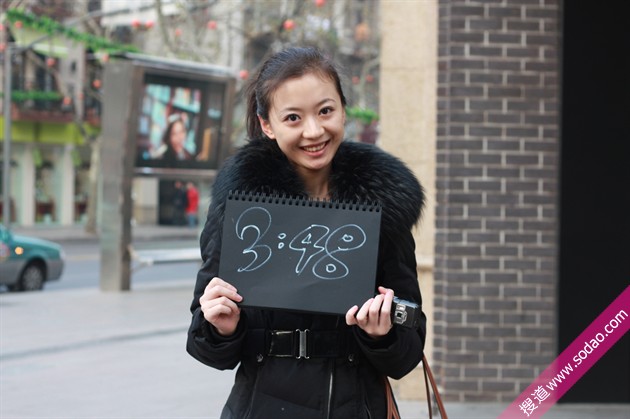 3:48
搜道www.sodao.com